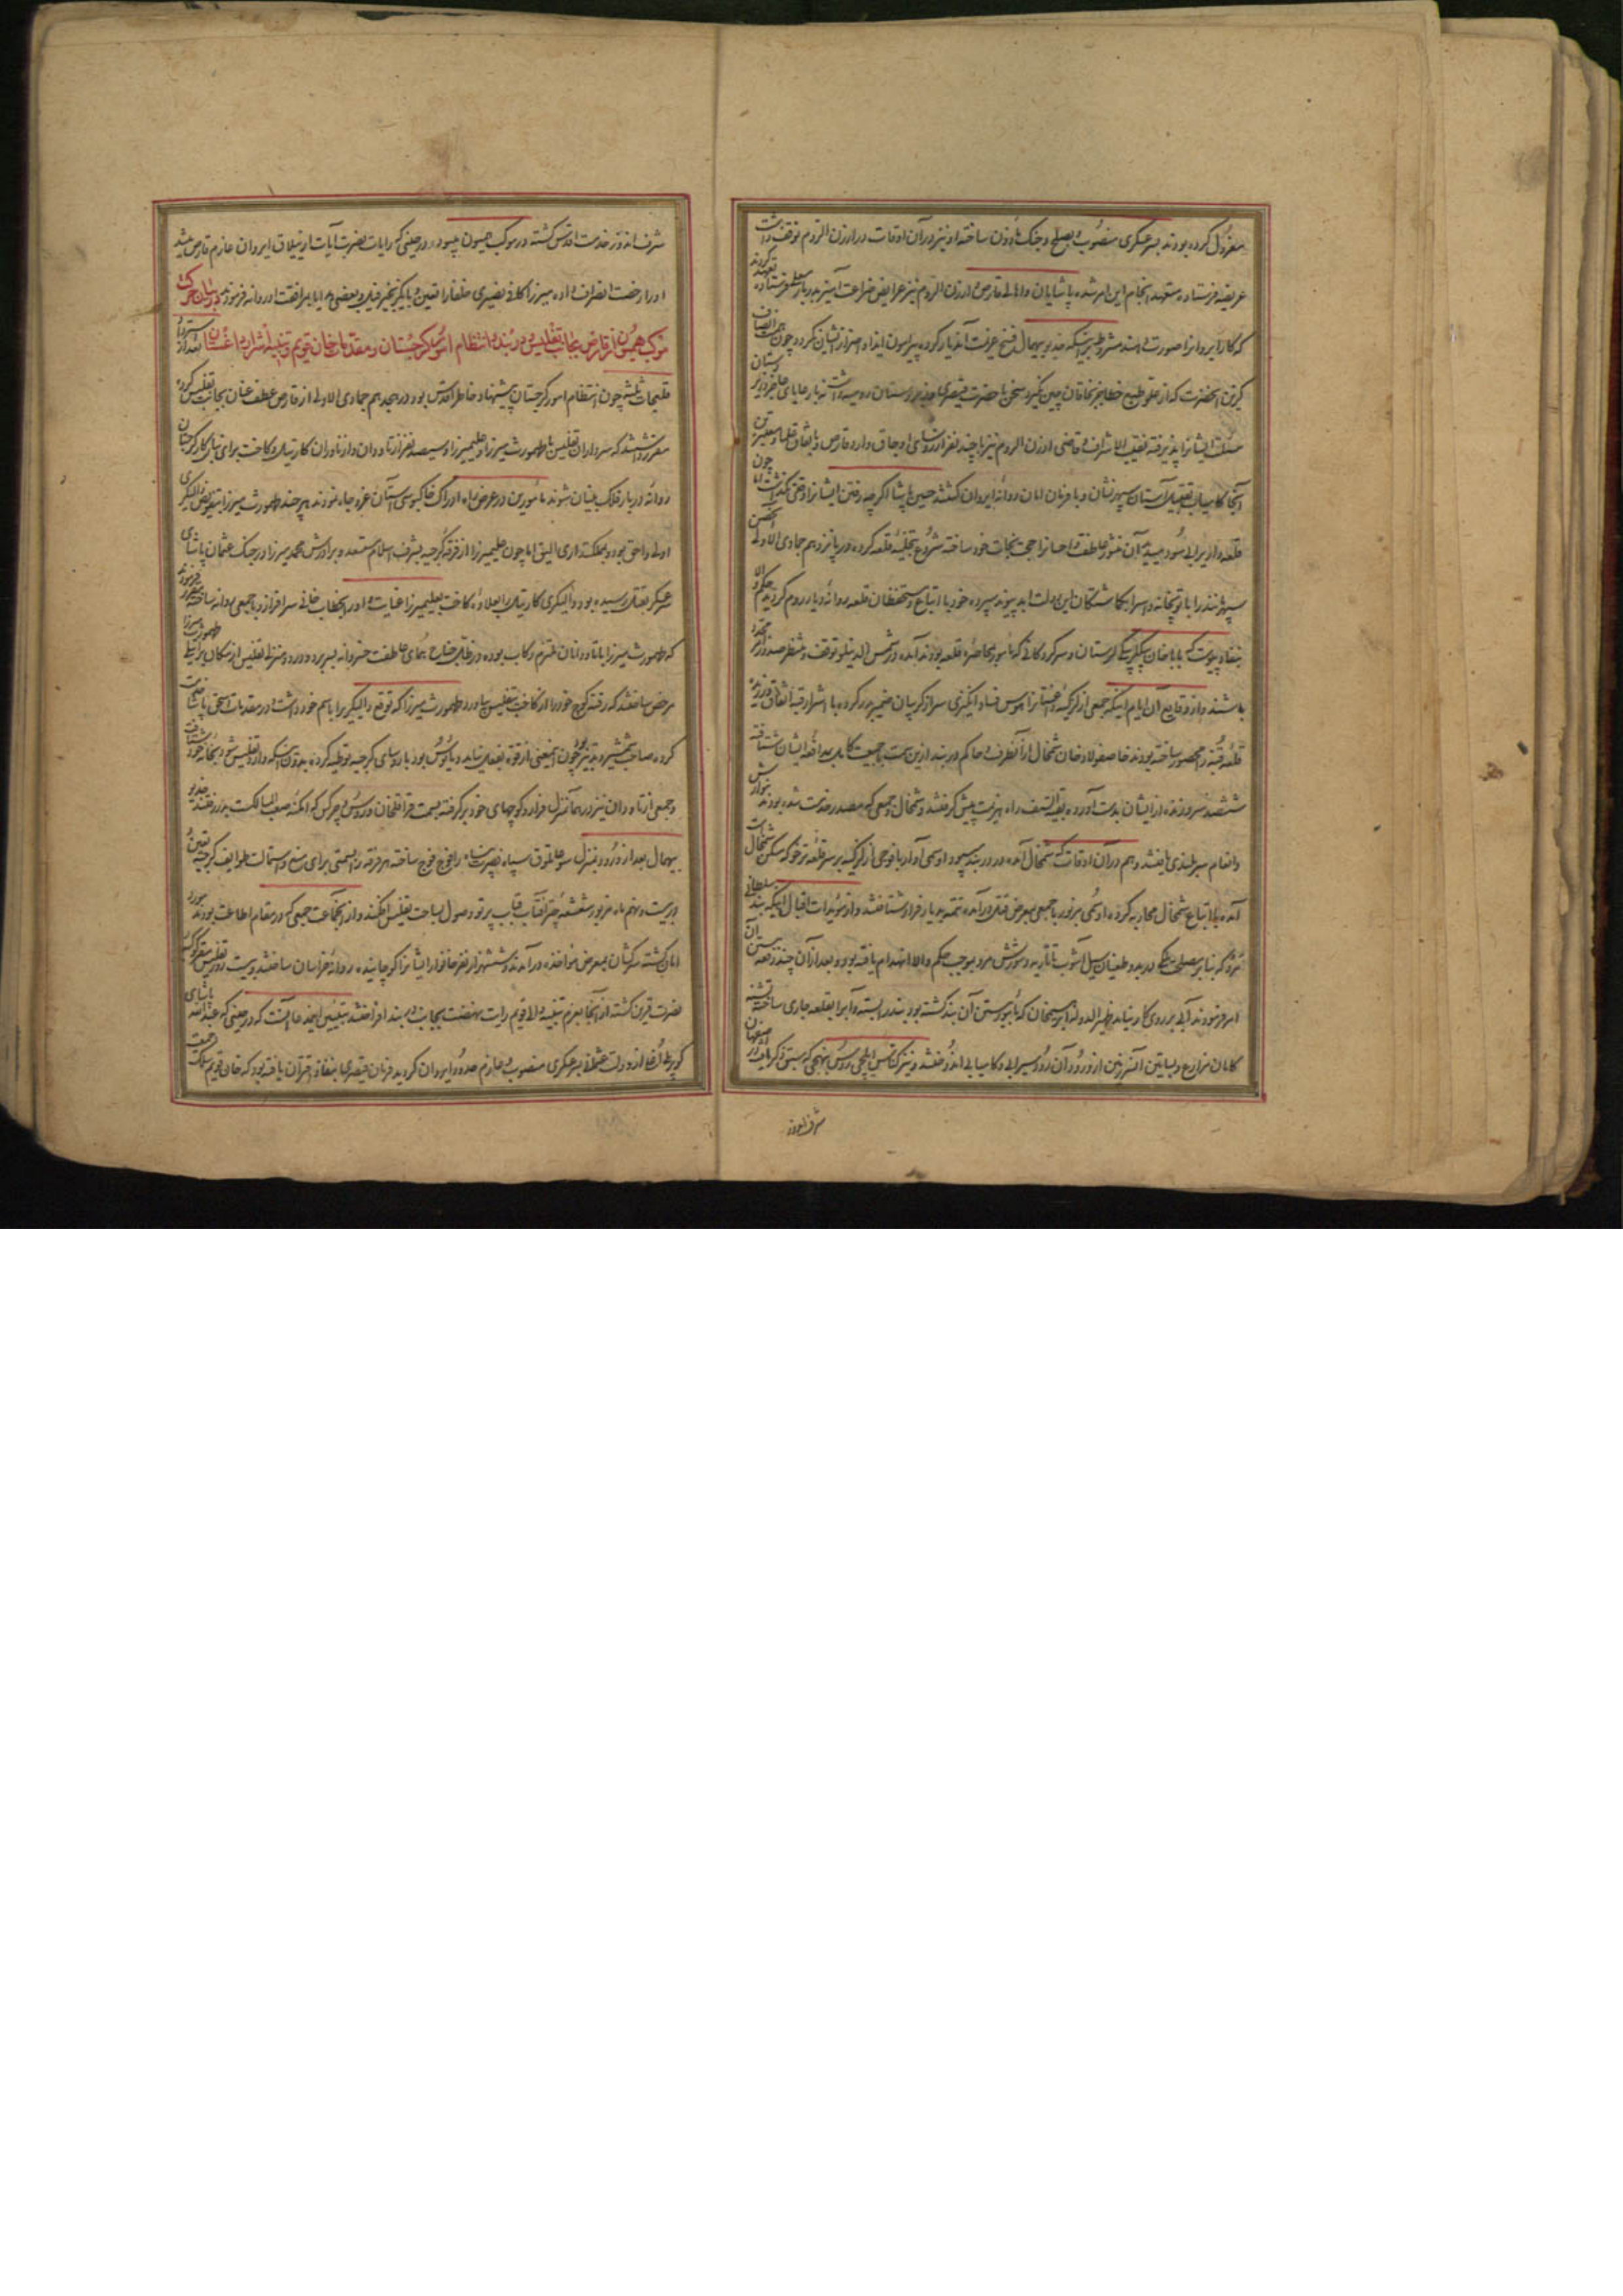 معزول کرده بودند بسرعسکری منصوب و بصلح و جنگ مأذون ساخته او نیز در آن اوقات در ارزن الروم توقف داشت
عریضه فرستاده متعهد انجام این امر شده پاشایان و اهالی قارص و ارزن الروم نیز عرایض ضراعت آمیز بدربار معلی فرستاده تعهد کردند
که کار ایروان را صورت دهند مشروط بر اینکه خدیو بیهمال فسخ عزیمت آندیار کرده پیرامون ایذا و اضرار ایشان نگردد چون همت انصاف
گزین آنحضرت که از علو طبع خطا بر خاقان چین نگیرد سخن با حضرت قیصر داشت نه با رعایای عاجز و زیردستان
مسئلت ایشانرا پذیرفته نقیب الاشراف و قاضی ارزن الروم نیز با چند نفر از رؤسای اوجاق وارد قارص و باتفاق علما و معتبرین
آنجا کامیاب تقبیل آستان سپهر نشان و با فرمان امان روانه ایروان گشتند حسین پاشا اگرچه رفتن ایشانرا وقعی نگذاشت اما چون
قلعه داری برای سود میدید آن منشور عاطفت و احسانرا حجت نجات خود ساخته شروع بتخلیه قلعه کرده در پانزدهم جمادی الاولی
سپهر مانند را با توپخانه و اسرا بگماشتگان این دولت ابد پیوند سپرده خود با اتباع و مستحفظان قلعه روانه دیار روم گردید حکم والا
بنفاذ پیوست که باباخان بیگلربیگی لرستان و سرکردگانی که مأمور بمحاصره قلعه بودند آمده در شمس الدینلو توقف و منتظر صدور امر مجدد
باشند و از وقایع آن ایام اینکه جمعی از لزگیه داغستانرا هوس فساد انگیزی سر از گریبان ضمیر بدر کرده با اشرار قبه اتفاق ورزیده
قلعه قبه را محصور ساخته بودند خاصفولاد خان شمخال از آنطرف و حاکم دربند ازین سمت با جمعیت کامل بمدافعه ایشان شتافته
ششصد سر و زنده از ایشان بدست آورده بقیة السیف راه هزیمت پیش گرفتند و شمخال و جمعی که مصدر خدمت شده بودند بنوازش
و انعام سربلندی یافتند و هم در آن اوقات که شمخال آمده در دربند میبود اوسمی آواره با فوجی از لزگیه بر سر قلعه ترخو که مسکن شمخال است
آمده با اتباع شمخال محاربه کرده اوسمی مزبور با جمعی بمعرض قتل درآمده تتمه بدیار فرار شتافتند و از مؤیدات اقبال اینکه بند سلطانی
مرو که بنابر مصلحت ملکی در بدو طغیان سیل آشوب تاتاریه و شورش مرو بموجب حکم والا انهدام یافته بود و بعد از آن چند دفعه ببستن آن
امر فرمودند آبی بر روی کار نیامد ظهیر الدوله ابراهیم خان که مأمور ببستن آن بند گشته بود بند را بسته و آب را بقلعه جاری ساخته تشنه
کامان مزارع و بساتین آنسرزمین از ورود آن رود سیرابی و کامیابی اندوختند و نیز کنیاس ایلچی روس بنهجی که سبق ذکر یافت در اصفهان
شرف اندوز
شرف اندوز خدمت اقدس گشته در موکب همیون میبود در حینی که رایات نصرت آیات از ییلاق ایروان عازم قارص میشد
او را رخصت انصراف داده میرزا کافی نصیری خلفا را تعیین و با یک زنجیر فیل و بعضی هدایا بمرافقت او روانه فرمودند در بیان حرکت
موکب همیون از قارص بجانب تفلیس و دربند و انتظام امور گرجستان و مقدمات خان قریم و تنبیه اشرار داغستان
چون انتظام امور گرجستان پیشنهاد خاطر اقدس بود در هجدهم جمادی الاولی از قارص عطف عنان بجانب تفلیس کرده
مقرر داشتند که سرداران تفلیس با طهمورث میرزا و علیمیرزا و سیصد نفر از تاوادان و ازناوران کارتیل و کاخت برای تنسیق کار گرجستان
روانه دربار فلک بنیان شوند مأمورین در عرض راه ادراک خاکبوسی آستان عز و جاه نمودند هر چند طهمورث میرزا بتفویض والیگری
اولی و احق بود و بمملکتداری الیق اما چون علیمیرزا از فرقه گرجیه بشرف اسلام مستعد و برادرش محمد میرزا در جنگ عثمان پاشای
سرعسکر بقتل رسیده بود والیگری کارتیل را بعلاوه کاخت بعلیمیرزا عنایت و او را بخطاب خانی سرافراز و با جمعی روانه ساخته مقرر فرمودند
که طهمورث میرزا با تاوادان ملتزم رکاب بوده در ظل جناح همای عاطفت خسروانه بسر برد و در دو منزلی تفلیس از مکان طهمورث میرزا
مرخص ساختند که رفته کوچ خود را از کاخت بتفلیس بیاورد طهمورث میرزا که توقع والیگری را باسم خود داشت و در مقدمات اسحق پاشا خدمت
کرده صاحب شمشیر و تدبیر بود چون اینمعنی از قوه بفعل نیامد و مأیوس بود با رؤسای گرجیه توطئه کرده بدون اینکه وارد تفلیس شود بخانه خود شتافت
و جمعی از تاوادان نیز در همان منزل فرار و کوچهای خود برگرفته بسمت قراقلخان و روس و چرکس که امکنه صعب المسالک است بدر رفتند خدیو
بیهمال بعد از ورود بمنزل سوغانلوق سپاه نصرت پناه را فوج فوج ساخته هر فرقه را بسمتی برای منع و استمالت طوایف گرجیه تعیین و
در بیست و نهم ماه مزبور شعشعه چتر آفتاب قباب پرتو وصول بساحت تفلیس افکنند و از آنجماعت جمعی که در مقام اطاعت بودند مورد
امان گشته سرکشان بمعرض مواخذه درآمدند و ششهزار نفر خانوار ایشانرا کوچانیده روانه خراسان ساختند و بیست روز تفلیس مقر کوکبه
نصرت قرین گشته از آنجا بعزم تنبیه والا قریم رایت نهضت بجانب دربند افراختند تبیین اینمدعا آنست که در حینی که عبدالله پاشای
کوپرلی اوغلی از دولت عثمانی بسرعسکری منصوب و عازم حدود ایروان گردید فرمان قیصری بنفاذ اقتران یافته بود که خان قریم با جمعیت